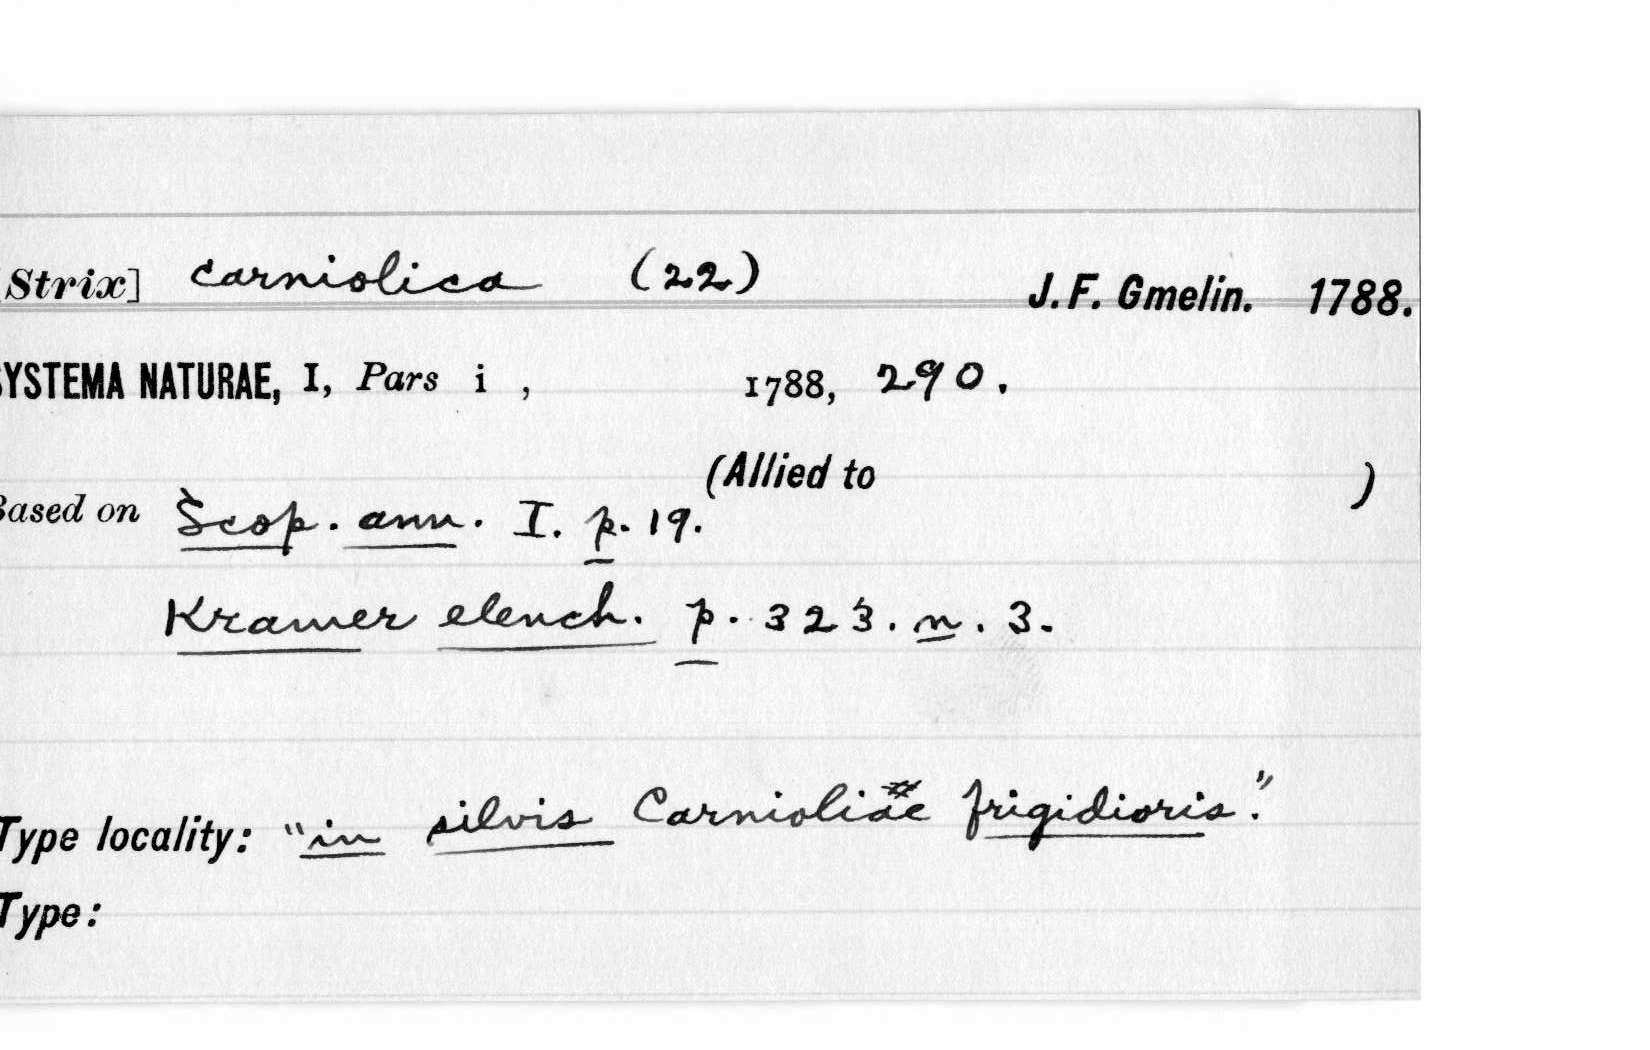 Strix] carniolica (22) J. F. Gmelin. 1788.
SYSTEMA NATURAE, I, Pars i , 1788, 290.
(Allied to )
Based on Scop. ann. I. p. 19.
Kramer elench. p. 323. n. 3.
Type locality: "in silvis Carnioliae frigidioris."
Type: